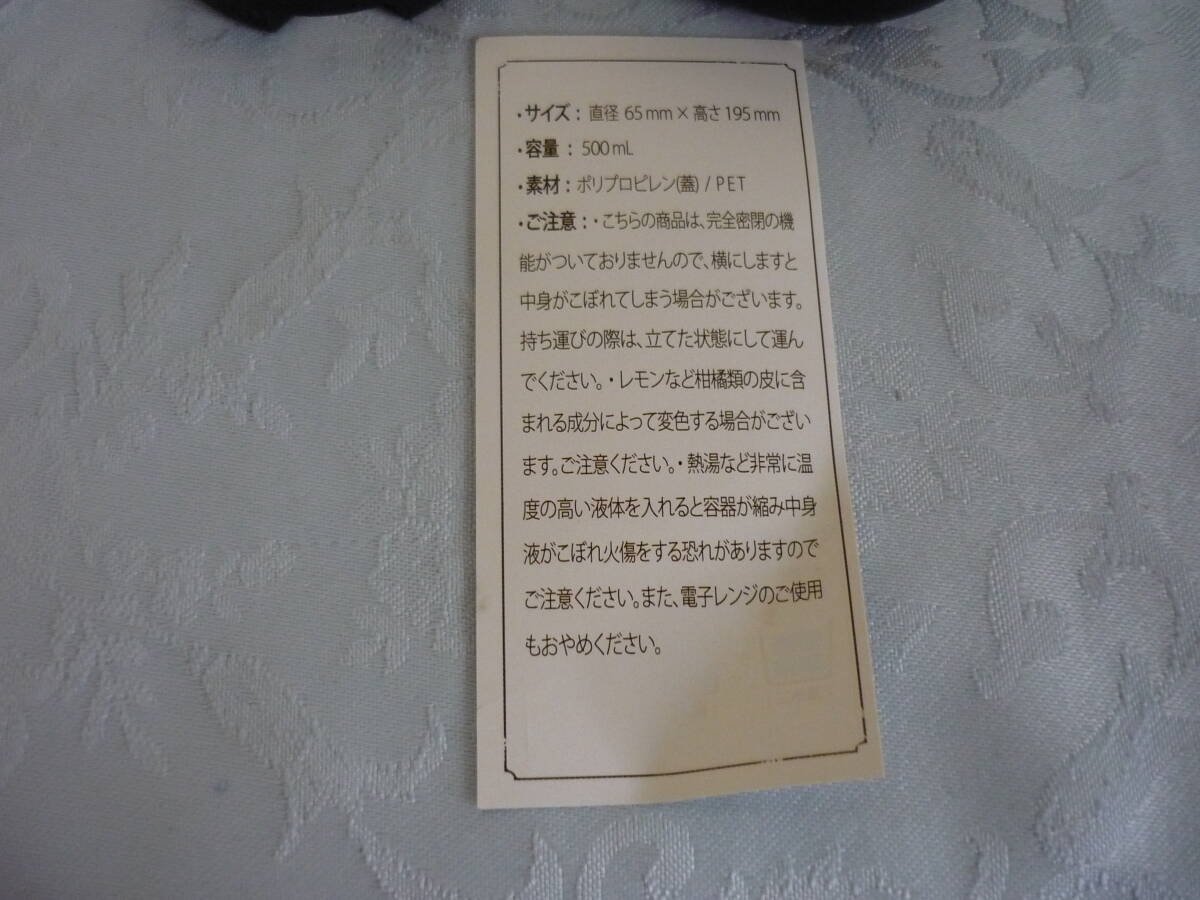 ・サイズ： 直径 65 mm × 高さ 195 mm
・容量： 500 mL
・素材： ポリプロピレン(蓋) / PET
・ご注意：・こちらの商品は、完全密閉の機
能がついておりませんので、横にしますと
中身がこぼれてしまう場合がございます。
持ち運びの際は、立てた状態にして運ん
でください。・レモンなど柑橘類の皮に含
まれる成分によって変色する場合がござい
ます。ご注意ください。・熱湯など非常に温
度の高い液体を入れると容器が縮み中身
液がこぼれ火傷をする恐れがありますので
ご注意ください。また、電子レンジのご使用
もおやめください。